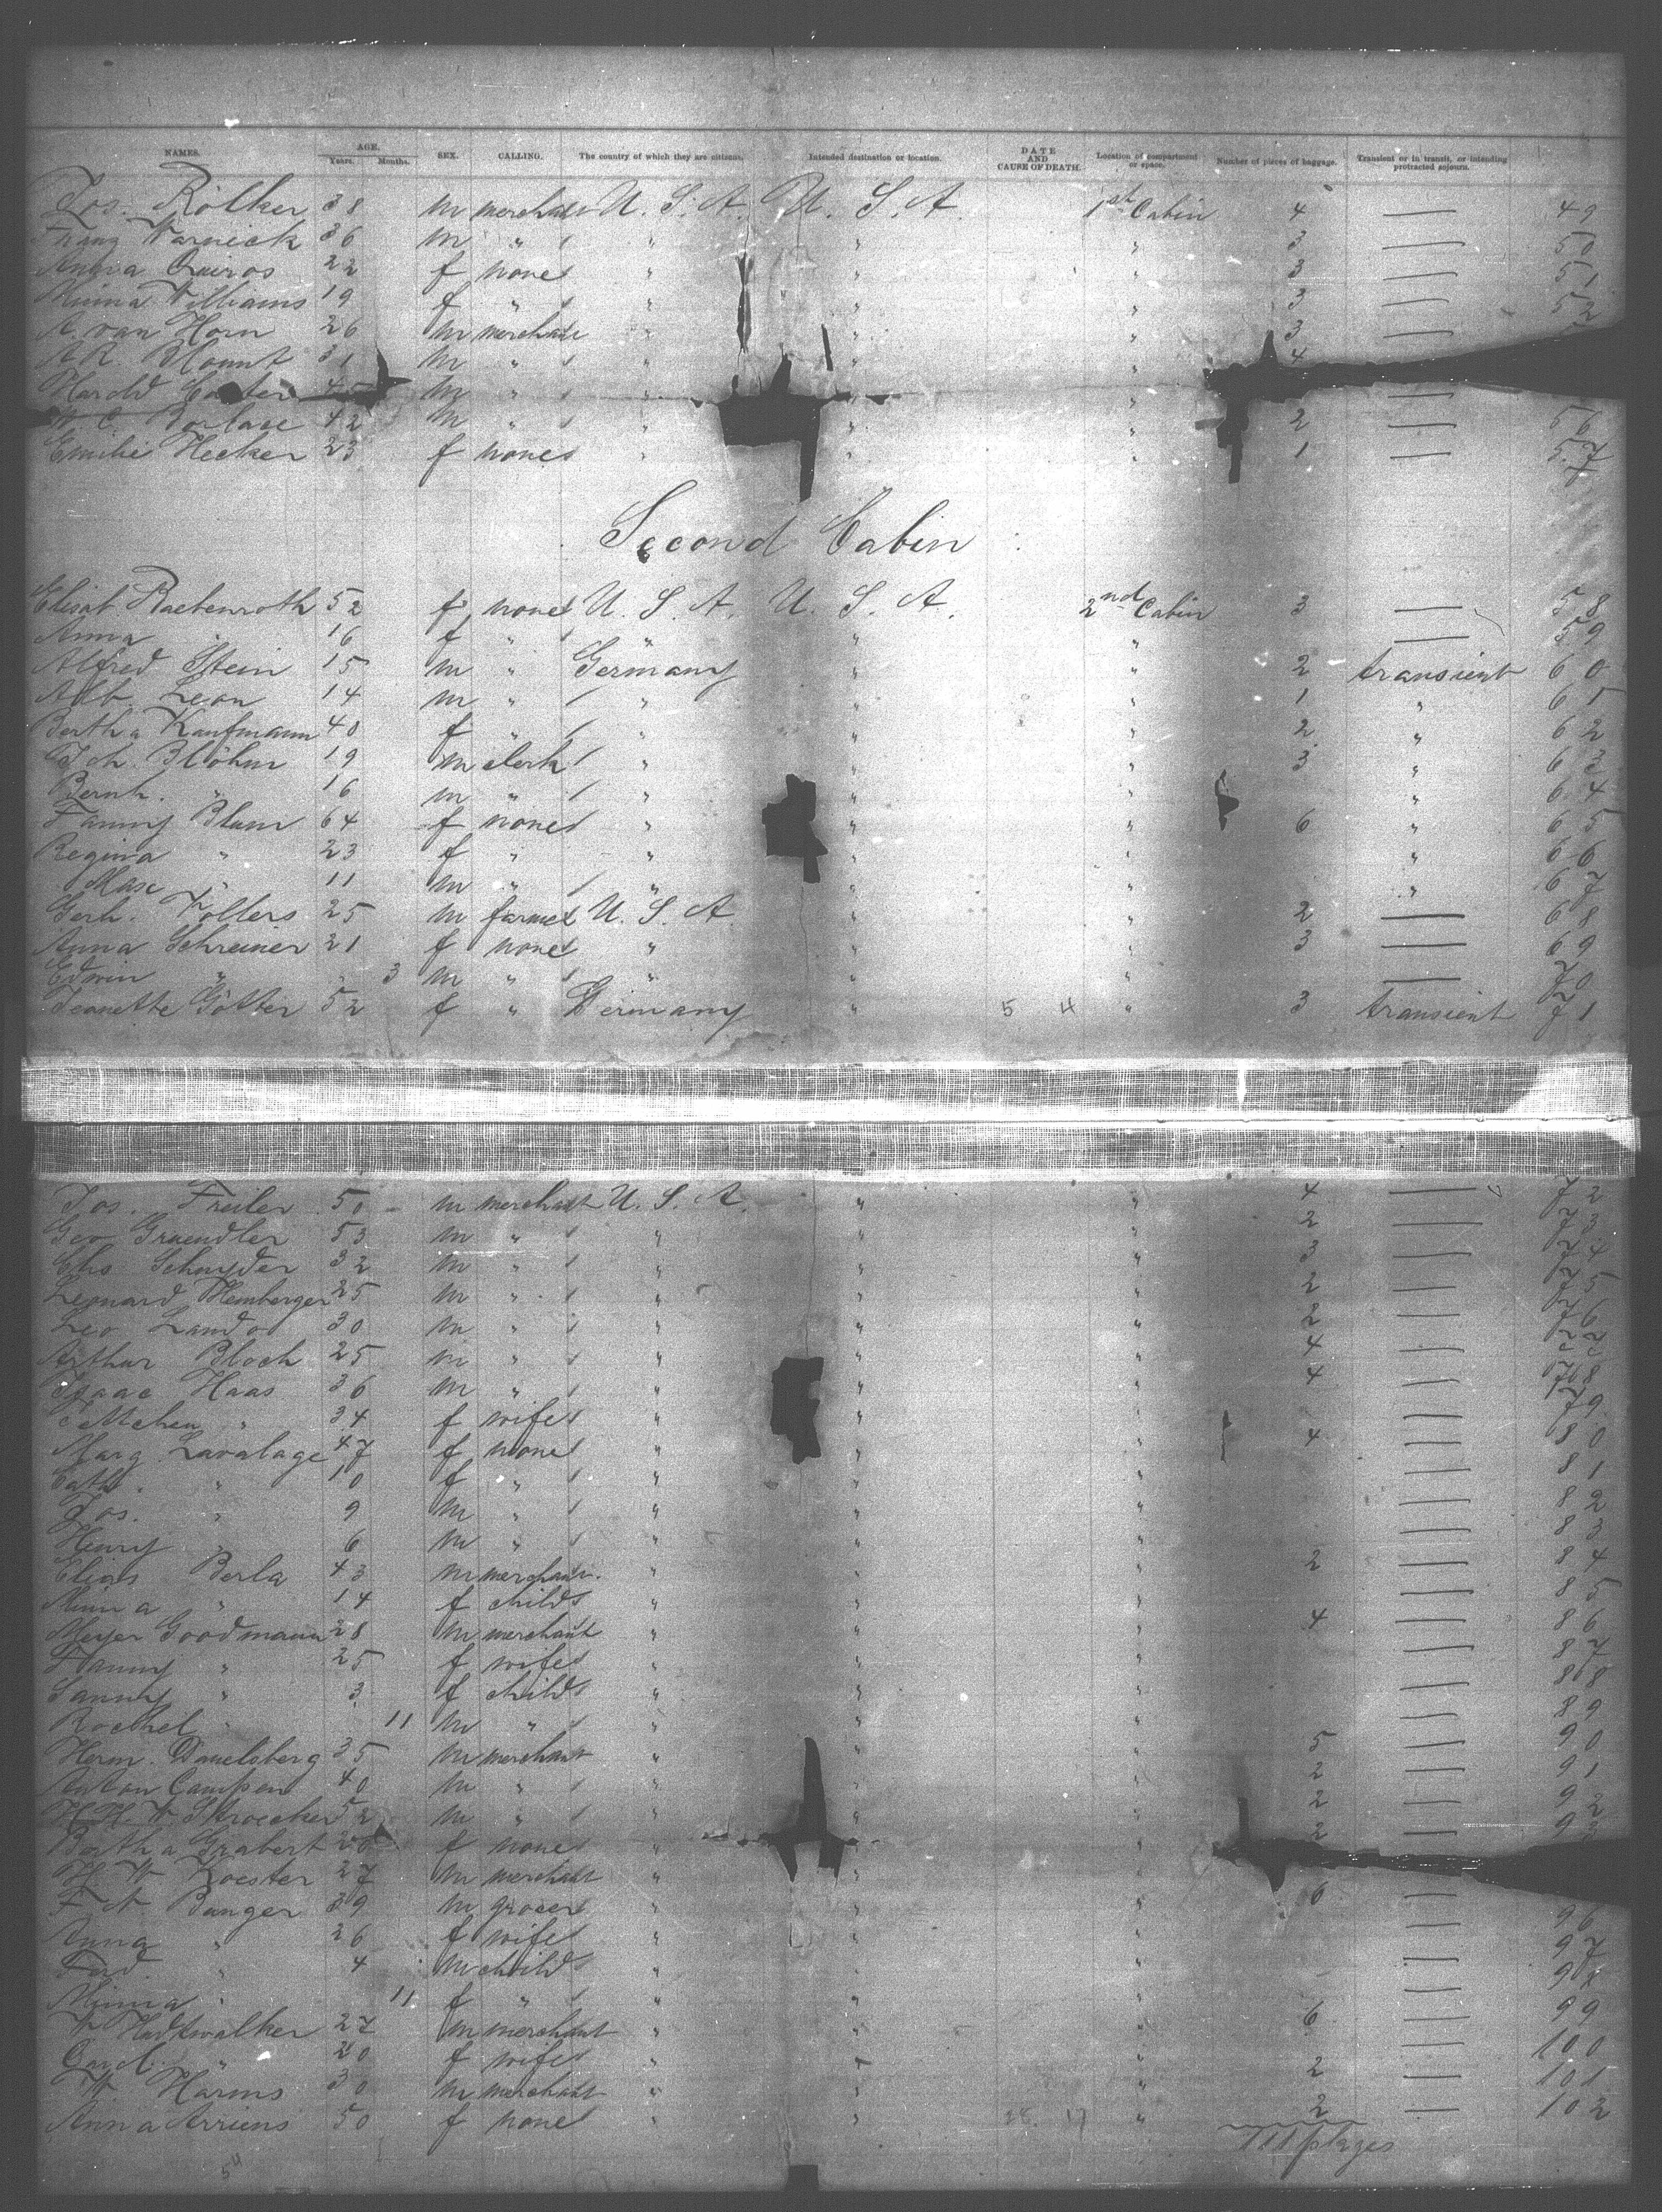 NAMES. AGE. Years. Months. SEX. CALLING. The country of which they are citizens. Intended destination or location. DATE AND CAUSE OF DEATH. Location of compartment or space. Number of pieces of baggage. Transient or in transit, or intending protracted sojourn.
Jos. Rölker 38 m merchant U. S. A. U. S. A. 1st Cabin 4 — 49
Franz Warneck 36 m " " " " 3 — 50
Quiros 22 f none " " " 3 — 51
Minna Williams 19 f " " " " 3 — 52
A. van Horn 26 m merchant " " " 3 —
A. R. Blount 31 m " " " " 4
Harold 45 m " " " " —
W. C. 42 m " " " " 2 — 56
Emilie Hecker 23 f none " " " 1 — 57
Second Cabin
Elisab. Raebenroth 52 f none U. S. A. U. S. A. 2nd Cabin 3 — 58
Anna " 16 f " " " " — 59
Alfred Stein 15 m " Germany " " 2 transient 60
Alb. Leon 14 m " " " " 1 " 61
Bertha Kaufmann 40 f " " " " 2 " 62
Joh. Blöhm 19 m clerk " " " 3 " 63
Bernh. " 16 m " " " " " 64
Fanny Blum 64 f none " " " 6 " 65
Regina " 23 f " " " " " 66
Max " 11 m " " " " " 67
Gerh. Wolters 25 m farmer U. S. A. " " 2 — 68
Anna Schreiner 21 f none " " " 3 — 69
Edwin " " 3 m " " " " — 70
Jeanette Götter 52 f " Germany " 5 4 " 3 transient 71
Jos. Freiler 50 m merchant U. S. A. " " 4 — 72
Geo Gruendler 53 m " " " " 2 — 73
Chs Schnyder 32 m " " " " 3 — 74
Leonard Themberger 25 m " " " " 2 — 75
Leo Lando 30 m " " " " 2 — 76
Arthur Bloch 25 m " " " " 4 — 77
Isaac Haas 36 m " " " " 4 — 78
Jettchen " 34 f wife " " " — 79
Marg. Lavalage 47 f none " " " 4 — 80
Cath. " 10 f " " " " — 81
Jos. " 9 m " " " " — 82
Henry " 6 m " " " " — 83
Elias Berla 43 m merchant " " " 2 — 84
Minna " 14 f child " " " — 85
Meyer Goodmann 28 m merchant " " " 4 — 86
Fanny " 25 f wife " " " — 87
Sanny " 3 f child " " " — 88
Rochel " 11 m " " " " — 89
Herm. Danelsberg 35 m merchant " " " 5 — 90
Anton Campen 40 m " " " " 2 — 91
H. H. W. Stroecker 52 m " " " " 2 — 92
Bertha Grabert 20 f none " " " 2 — 9
H. W. Koester 27 m merchant " " "
F. A. Bunger 39 m grocer " " " 6 —
Anna " 26 f wife " " " — 96
Ferd. " 4 m child " " " — 97
Minna " 11 f " " " " — 98
W. Hudtwalker 27 m merchant " " " 6 — 99
Carol. " 20 f wife " " " — 100
W. Harms 30 m merchant " " " 2 — 101
Anna Arriens 50 f none " " 28 17 " 2 — 102
54